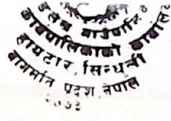 गाउँपालिकाको कार्यालय
हायटार, सिन्धुली
बागमती प्रदेश, नेपाल
२०७३